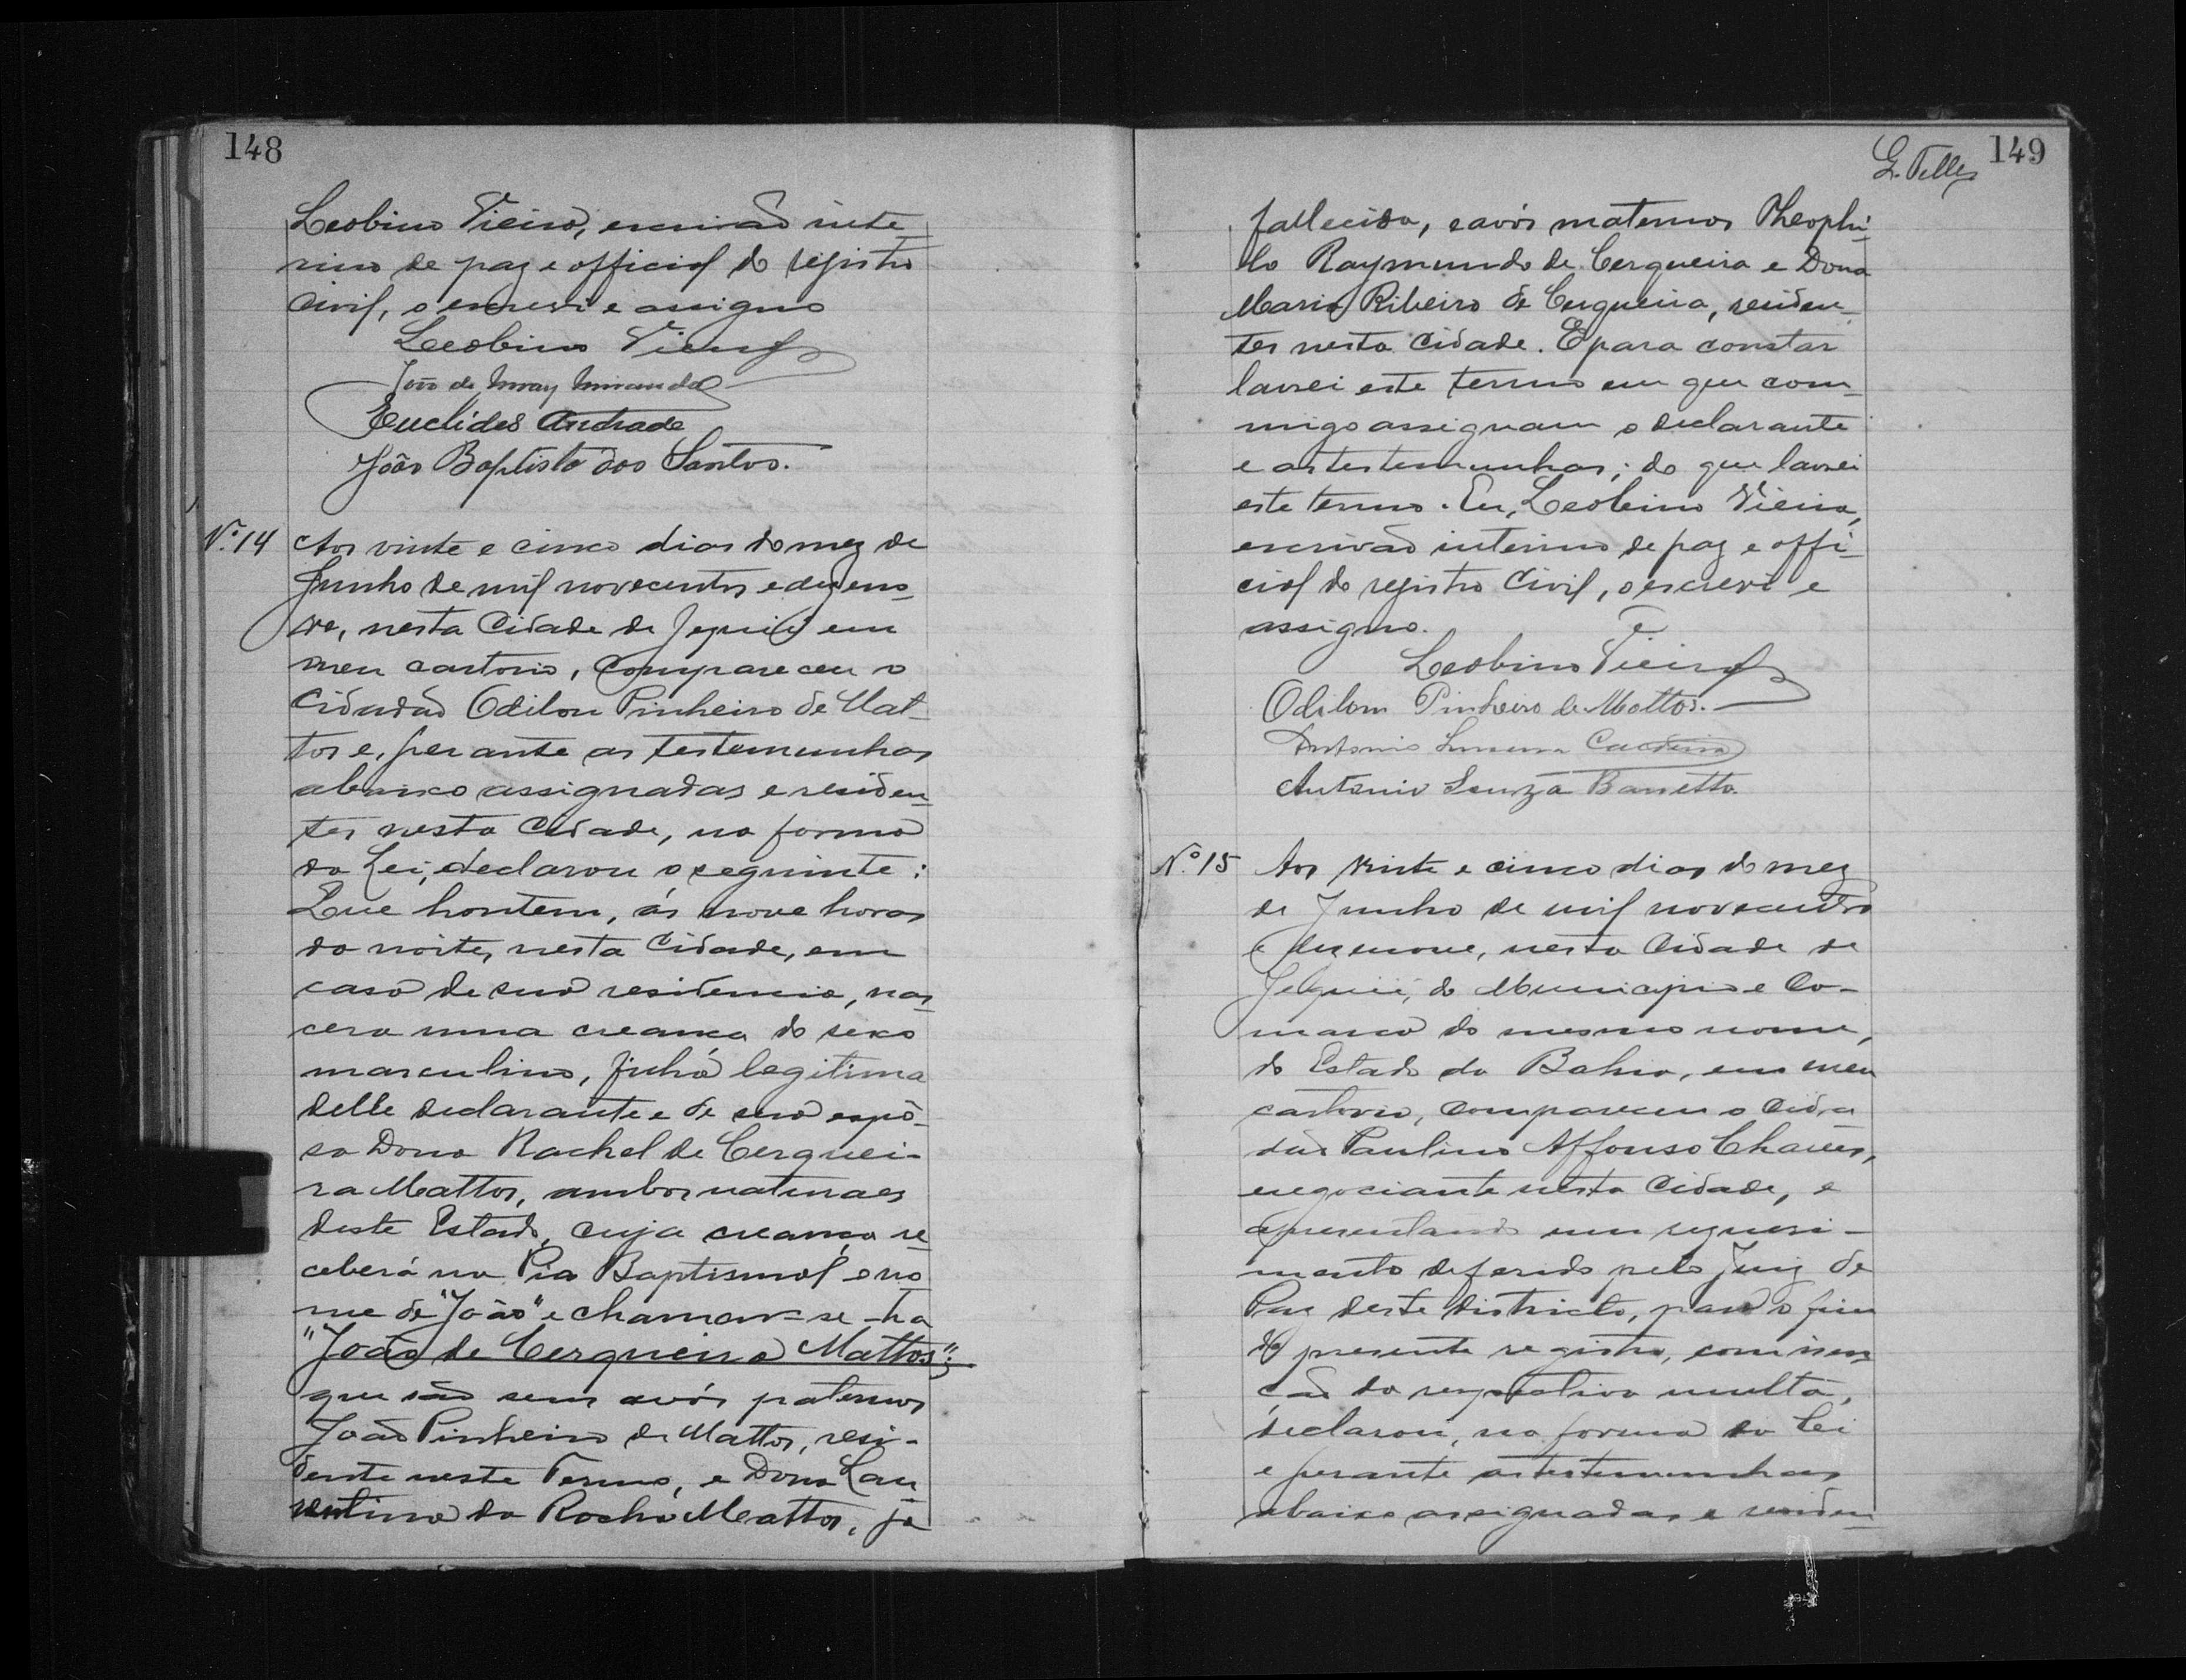 148
Leobino Vieira, escrivão inte-
rino de paz e official do registro
Civil, o escrevi e assigno
Leobino Vieira
João de Miranda
Euclides Andrade
João Baptista dos Santos.
N.º 14 Aos vinte e cinco dias do mez de
Junho de mil novecentos e dezeno-
ve, nesta Cidade de Jequié em
meu cartorio, compareceu o
Cidadão Odilon Pinheiro de Mat-
tos e, perante as testemunhas
abaixo assignadas e residen-
tes nesta Cidade, na forma
da Lei, declarou o seguinte:
Que hontem, ás nove horas
da noite, nesta Cidade, em
casa de sua residencia, nas-
cera uma creança do sexo
masculino, filha legitima
delle declarante e de sua espo-
sa Dona Rachel de Cerquei-
ra Mattos, ambos naturaes
deste Estado, cuja creança re-
ceberá na Pia Baptismal o no
me de "João" e chamar-se-ha
"João de Cerqueira Mattos";
que são seus avós paternos
João Pinheiro de Mattos, resi-
dente neste Termo, e Dona Lau
rentina da Rocha Mattos, já
G. Telles 149
fallecida, e avós maternos Theophi-
lo Raymundo de Cerqueira e Dona
Maria Ribeiro de Cerqueira, residen-
tes nesta Cidade. E para constar
lavrei este termo em que com-
migo assignam o declarante
e as testemunhas; do que lavrei
este termo. Eu, Leobino Vieira,
escrivão interino de paz e offi-
cial do registro Civil, o escrevi e
assigno.
Leobino Vieira
Odilon Pinheiro de Mattos.
Antonio
Antonio Souza Barretto.
N.º 15 Aos vinte e cinco dias do mez
de Junho de mil novecentos
e dezenove, nesta Cidade de
Jequié, do Municipio e Co-
marca do mesmo nome,
do Estado da Bahia, em meu
cartorio, compareceu o Cida
dão Paulino Affonso Chaves,
negociante nesta Cidade, e
apresentando um requeri-
mento deferido pelo Juiz de
Paz deste districto, para o fim
do presente registro, com isen-
ção da respectiva multa,
declarou, na forma da Lei
e perante as testemunhas
abaixo assignadas e residen-